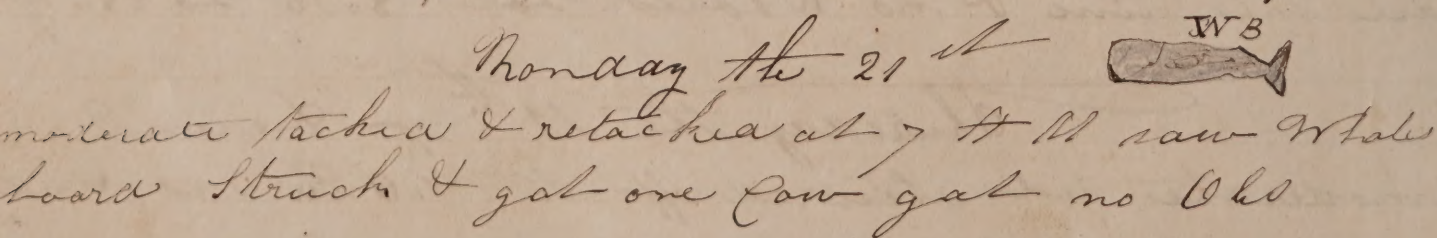 Monday the 21st WB
moderate tacked & retacked at 7 A M saw Whales
board Struck & got one Cow got no Obs